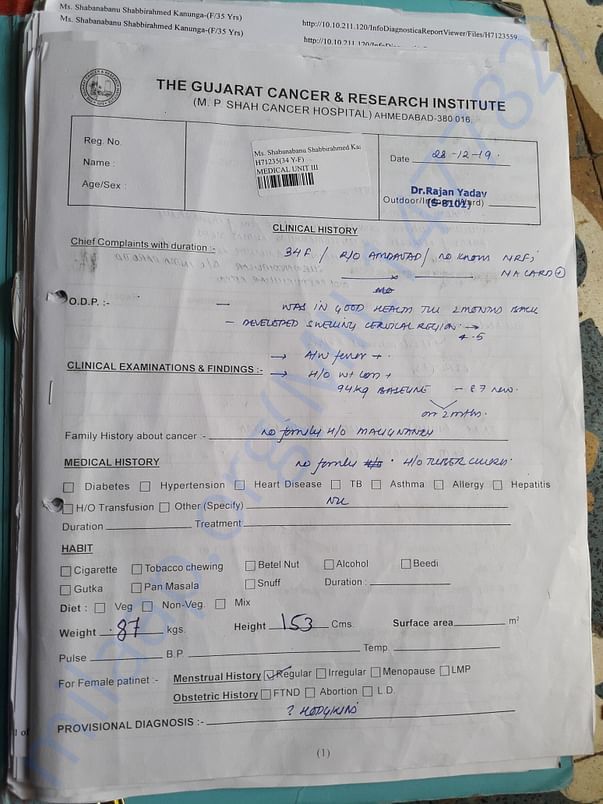 Ms. Shabanabanu Shabbirahmed Kanunga-(F/35 Yrs)
http://10.10.211.120/InfoDiagnosticaReportViewer/Files/H7123559...
Ms. Shabanabanu Shabbirahmed Kanunga-(F/35 Yrs)
http://10.10.211.120/InfoDia
THE GUJARAT CANCER & RESEARCH INSTITUTE
(M. P. SHAH CANCER HOSPITAL) AHMEDABAD-380 016.
Reg. No.
Name :
Age/Sex :
Ms. Shabanabanu Shabbirahmed Ka
H71235(34 Y-F)
MEDICAL UNIT III
Date 28-12-19.
Dr.Rajan Yadav
(G-8101)
CLINICAL HISTORY
Chief Complaints with duration :- 34F / R/O AMDAVAD / no known NRF;
NA CARD
O.D.P. :- — WAS IN GOOD HEALTH TILL 2 MONTHS BACK
— DEVELOPED SWELLING CERVICAL REGION. →
4.5
→ A/w fever +.
CLINICAL EXAMINATIONS & FINDINGS :- → H/O wt loss +
94kg BASELINE — 87 now.
on 2 mths.
Family History about cancer :- no family H/O MALIGNANCY
MEDICAL HISTORY no family H/O TUBERCULOSIS
Diabetes Hypertension Heart Disease TB Asthma Allergy Hepatitis
H/O Transfusion Other (Specify) NIL
Duration Treatment
HABIT
Cigarette Tobacco chewing Betel Nut Alcohol Beedi
Gutka Pan Masala Snuff Duration :
Diet : Veg Non-Veg. Mix
Weight 87 kgs. Height 153 Cms. Surface area m²
Pulse B.P. Temp.
For Female patinet :- Menstrual History Regular Irregular Menopause LMP
Obstetric History FTND Abortion L.D.
PROVISIONAL DIAGNOSIS :- ? HODGKINS
(1)
1 of
milaap.org(MIL147782)